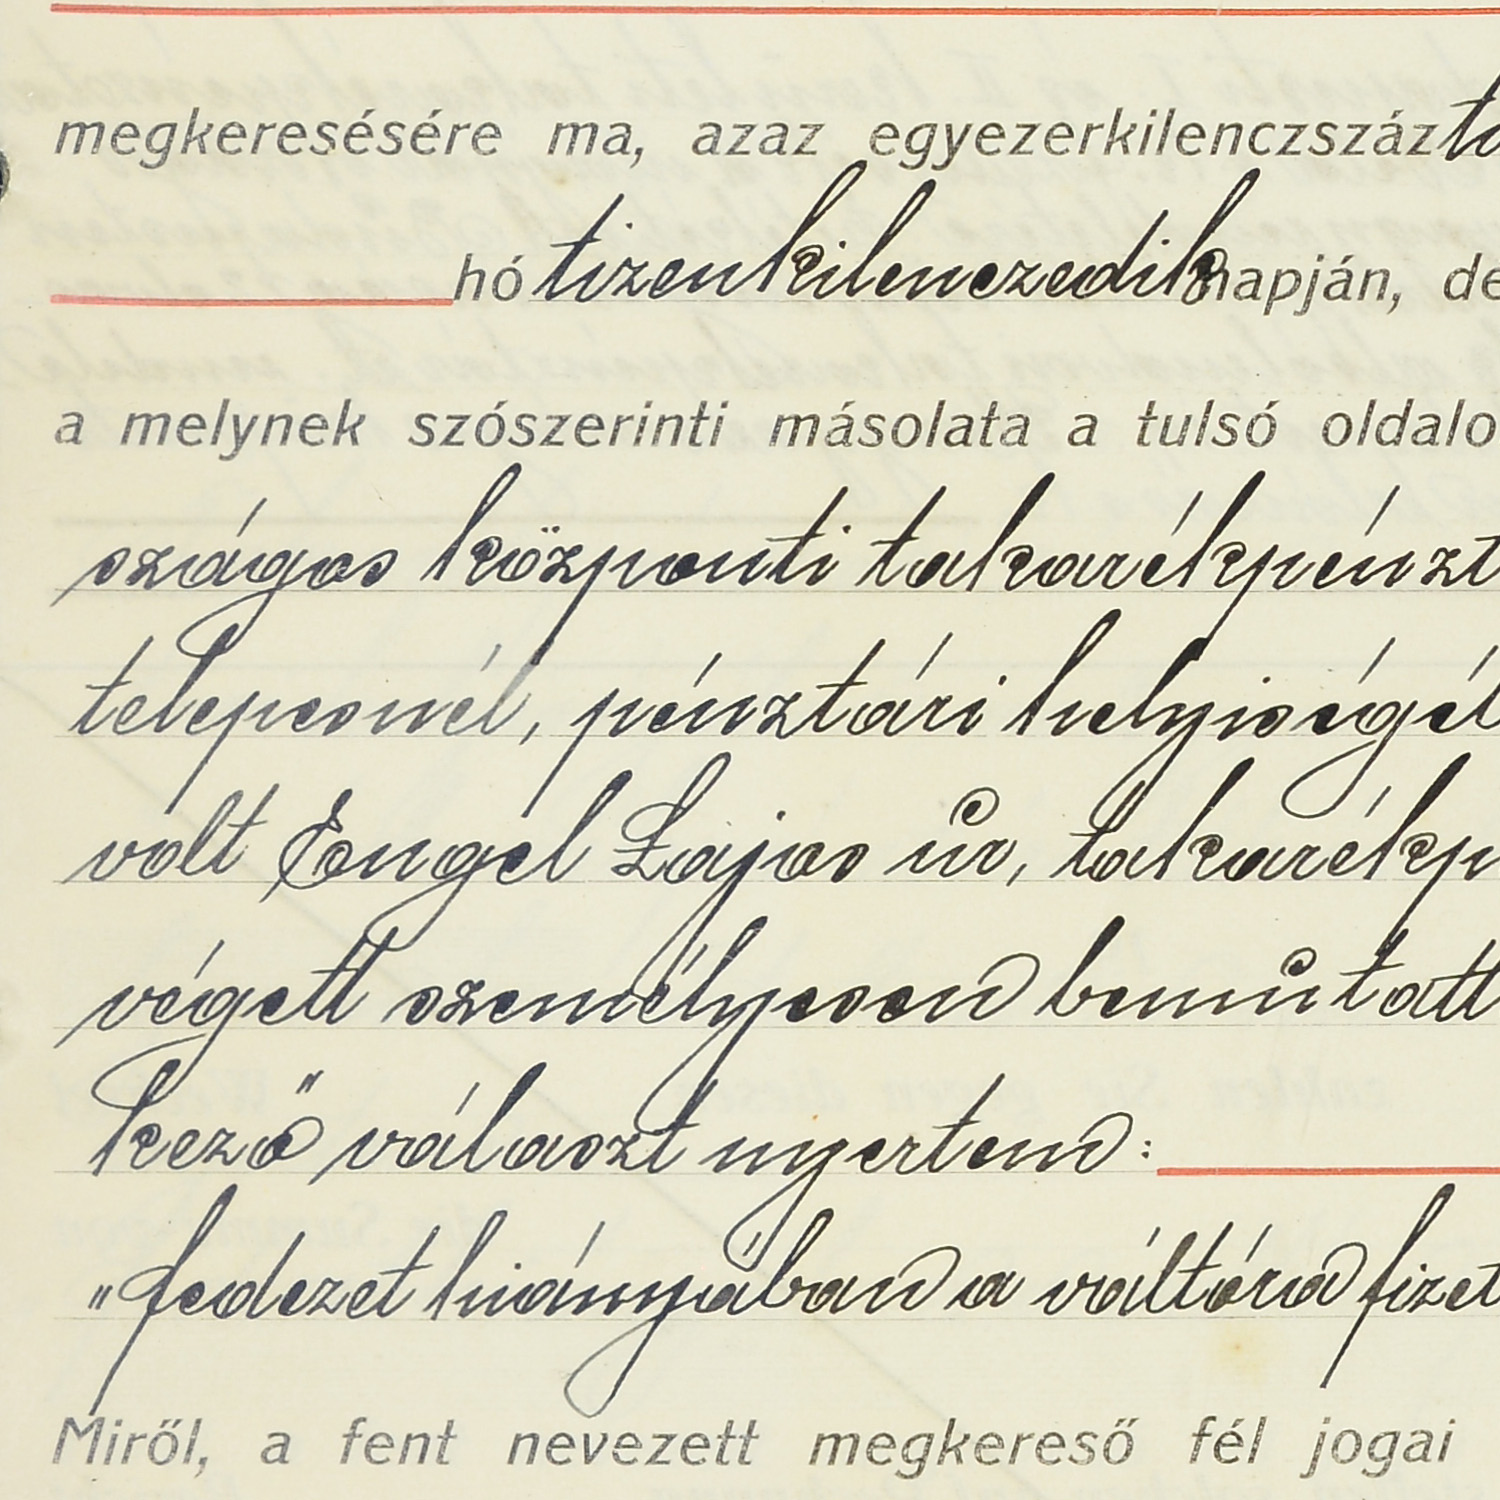 megkeresésére ma, azaz egyezerkilenczszáz
hó tizenkilenczedik napján, de
a melynek szószerinti másolata a tulsó oldalo
szágos központi takarékpénzt
telepesnél, pénztári helyiségél
volt Engel Lajos úr, takarékp
végett személyesen bemutatt
kező választ nyertem:
"fedezet hiányában a váltóra fizet
Miről, a fent nevezett megkereső fél jogai